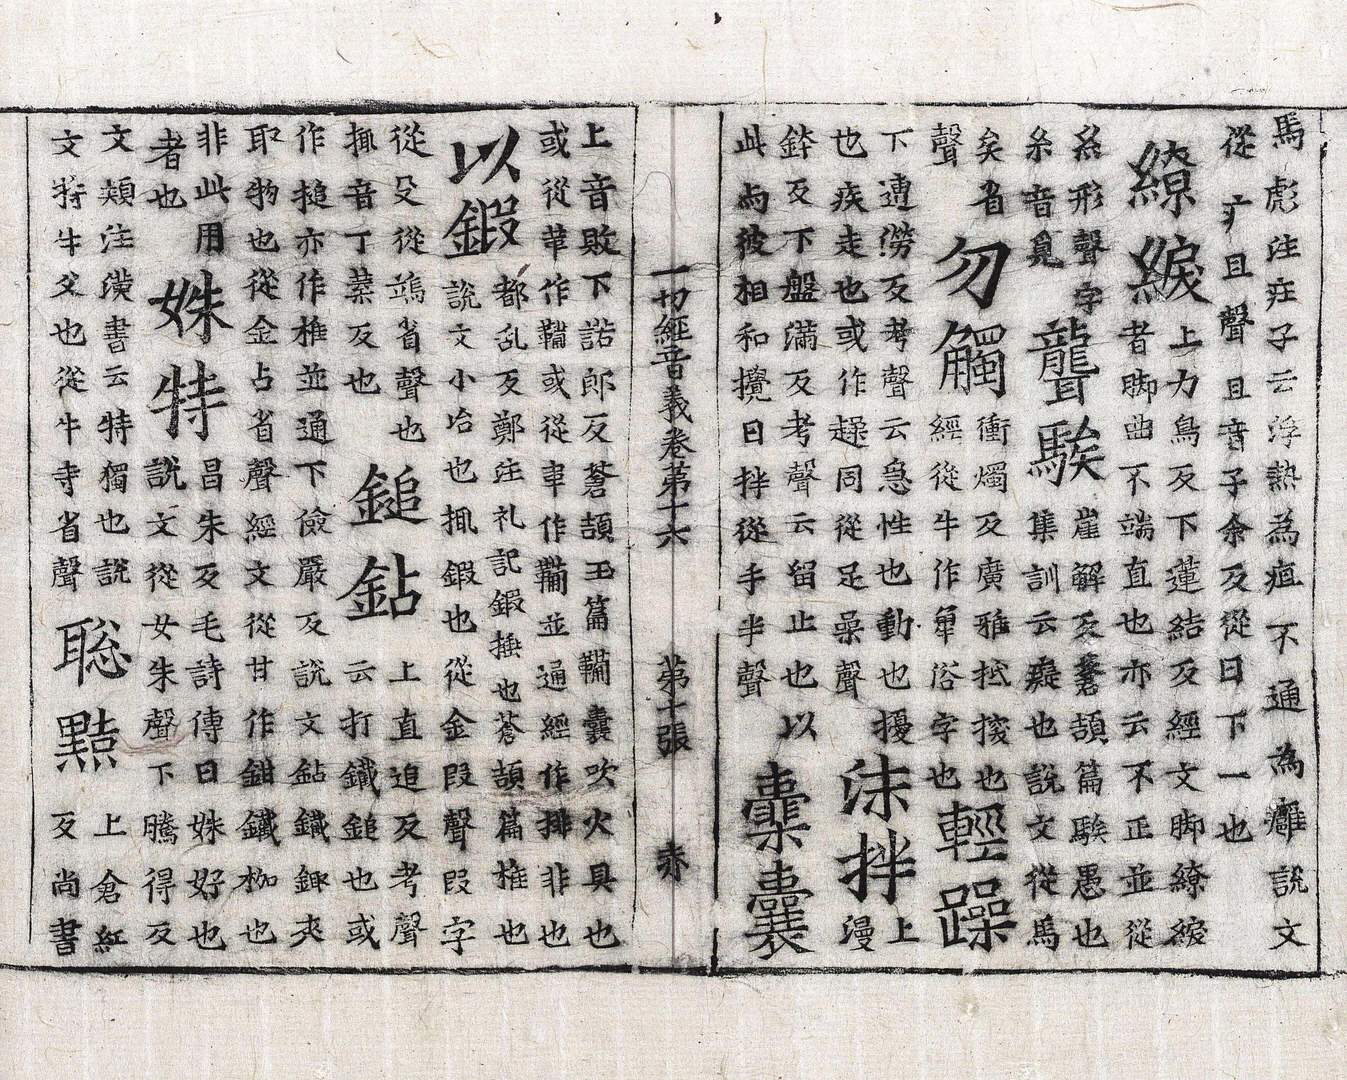 馬彪注莊子云浮熱為疽不通為癰說文
從疒且聲且音子余反從日下一也
繚綟
上力鳥反下蓮結反經文脚繚綟
者脚曲不端直也亦云不正並從
糸形聲字
糸音覓
聾騃
崖解反蒼頡篇騃愚也
集訓云癡也說文從馬
矣省
聲
勿觸
衝燭反廣雅揬也
經從牛作俗字也
輕躁
下遭澇反考聲云急性也動也擾
也疾走也或作趮同從足喿聲
沫拌
上
漫
鉢反下盤滿反考聲云留止也以
此而彼相和攪曰拌從手半聲
櫜囊
一切經音義卷第十六 第十張 赤
上音敗下諾郎反蒼頡玉篇囊吹火具也
或從韋作韛或從車作並通經作排非也
以鍛
都亂反鄭注礼記鍛捶也蒼頡篇椎也
說文小冶也鍛也從金段聲段字
從殳從耑省聲也
音丁葉反也
鎚鉆
上直追反考聲
云打鐵鎚也或
作搥亦作椎並通下儉嚴反說文鉆鐵夾
取物也從金占省聲經文從甘作鉗鐵枷也
非此用
者也
姝特
昌朱反毛詩傳曰姝好也
說文從女朱聲下騰得反
文頰注漢書云特獨也說
文特牛父也從牛寺省聲
聡㸃
上倉紅
反尚書